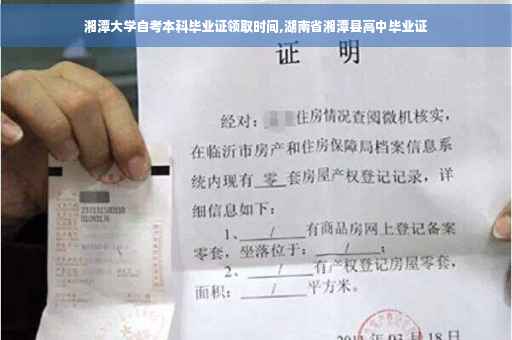 湘潭大学自考本科毕业证领取时间,湖南省湘潭县高中毕业证
证 明
经对: 住房情况查阅微机核实,
在临沂市房产和住房保障局档案信息系
统内现有 零 套房屋产权登记记录, 详
细信息如下:
1、 / 有商品房网上登记备案
零套, 坐落位于: / ;
2、 / 有产权登记房屋零套,
面积: / 平方米。
03 月 18 日